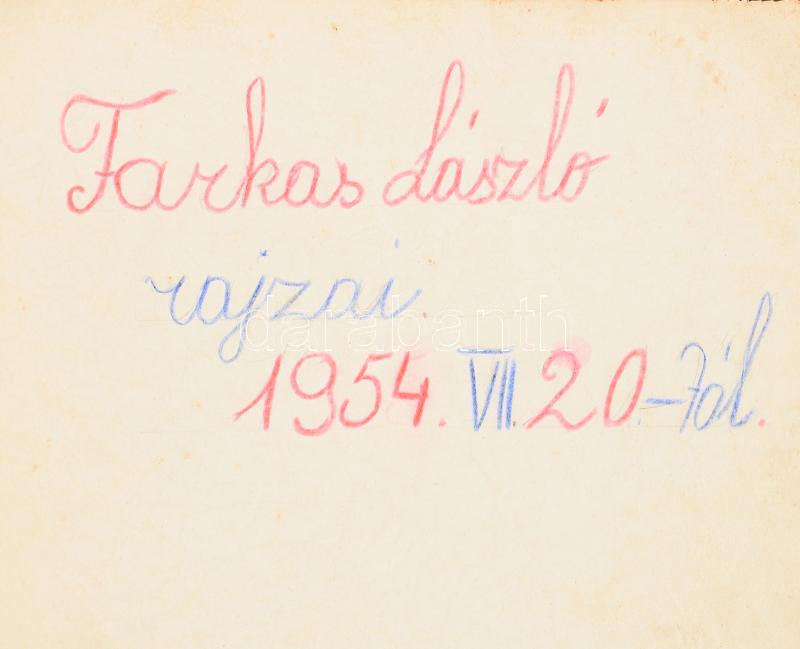 Farkas László
rajzai.
darabanth
1954. VII. 20.-tól.